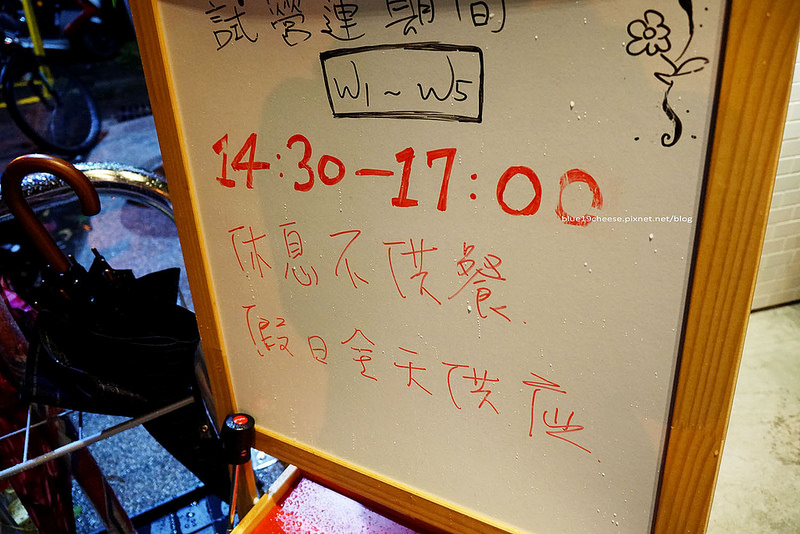 試營運期間
W1~W5
14:30-17:00
blue19cheese.pixnet.net/blog
休息不供餐
假日全天供座